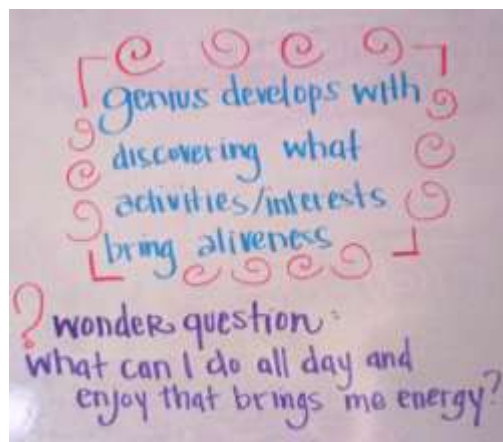 genius develops with
discovering what
activities/interests
bring aliveness
? wonder question:
What can I do all day and
enjoy that brings me energy?